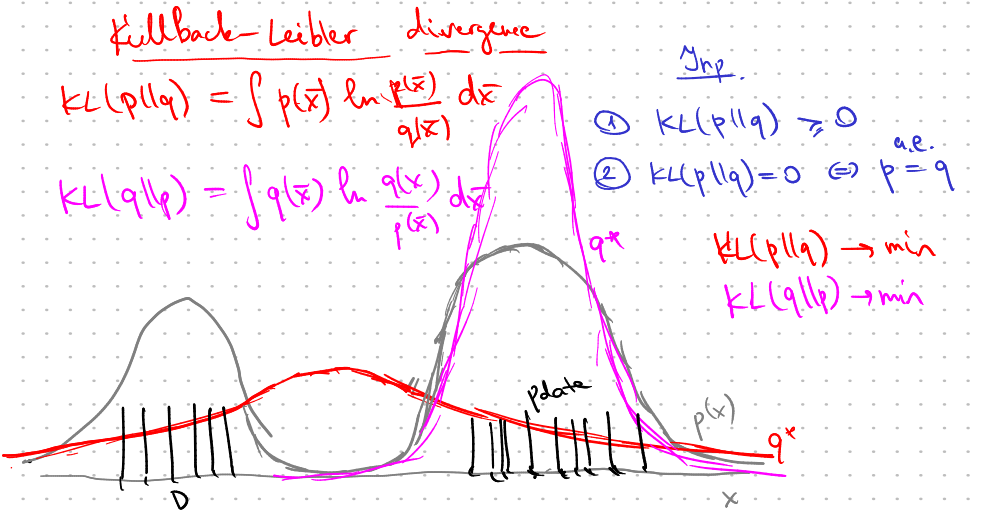 Kullback-Leibler divergence
KL(p||q) = ∫ p(x̄) ln p(x̄)/q(x̄) dx̄
KL(q||p) = ∫ q(x̄) ln q(x)/p(x̄) dx̄
Упр.
① KL(p||q) ⩾ 0
② KL(p||q)=0 ⇔ p a.e. = q
KL(p||q) → min
KL(q||p) → min
q*
pdata
p(x)
q*
D
x